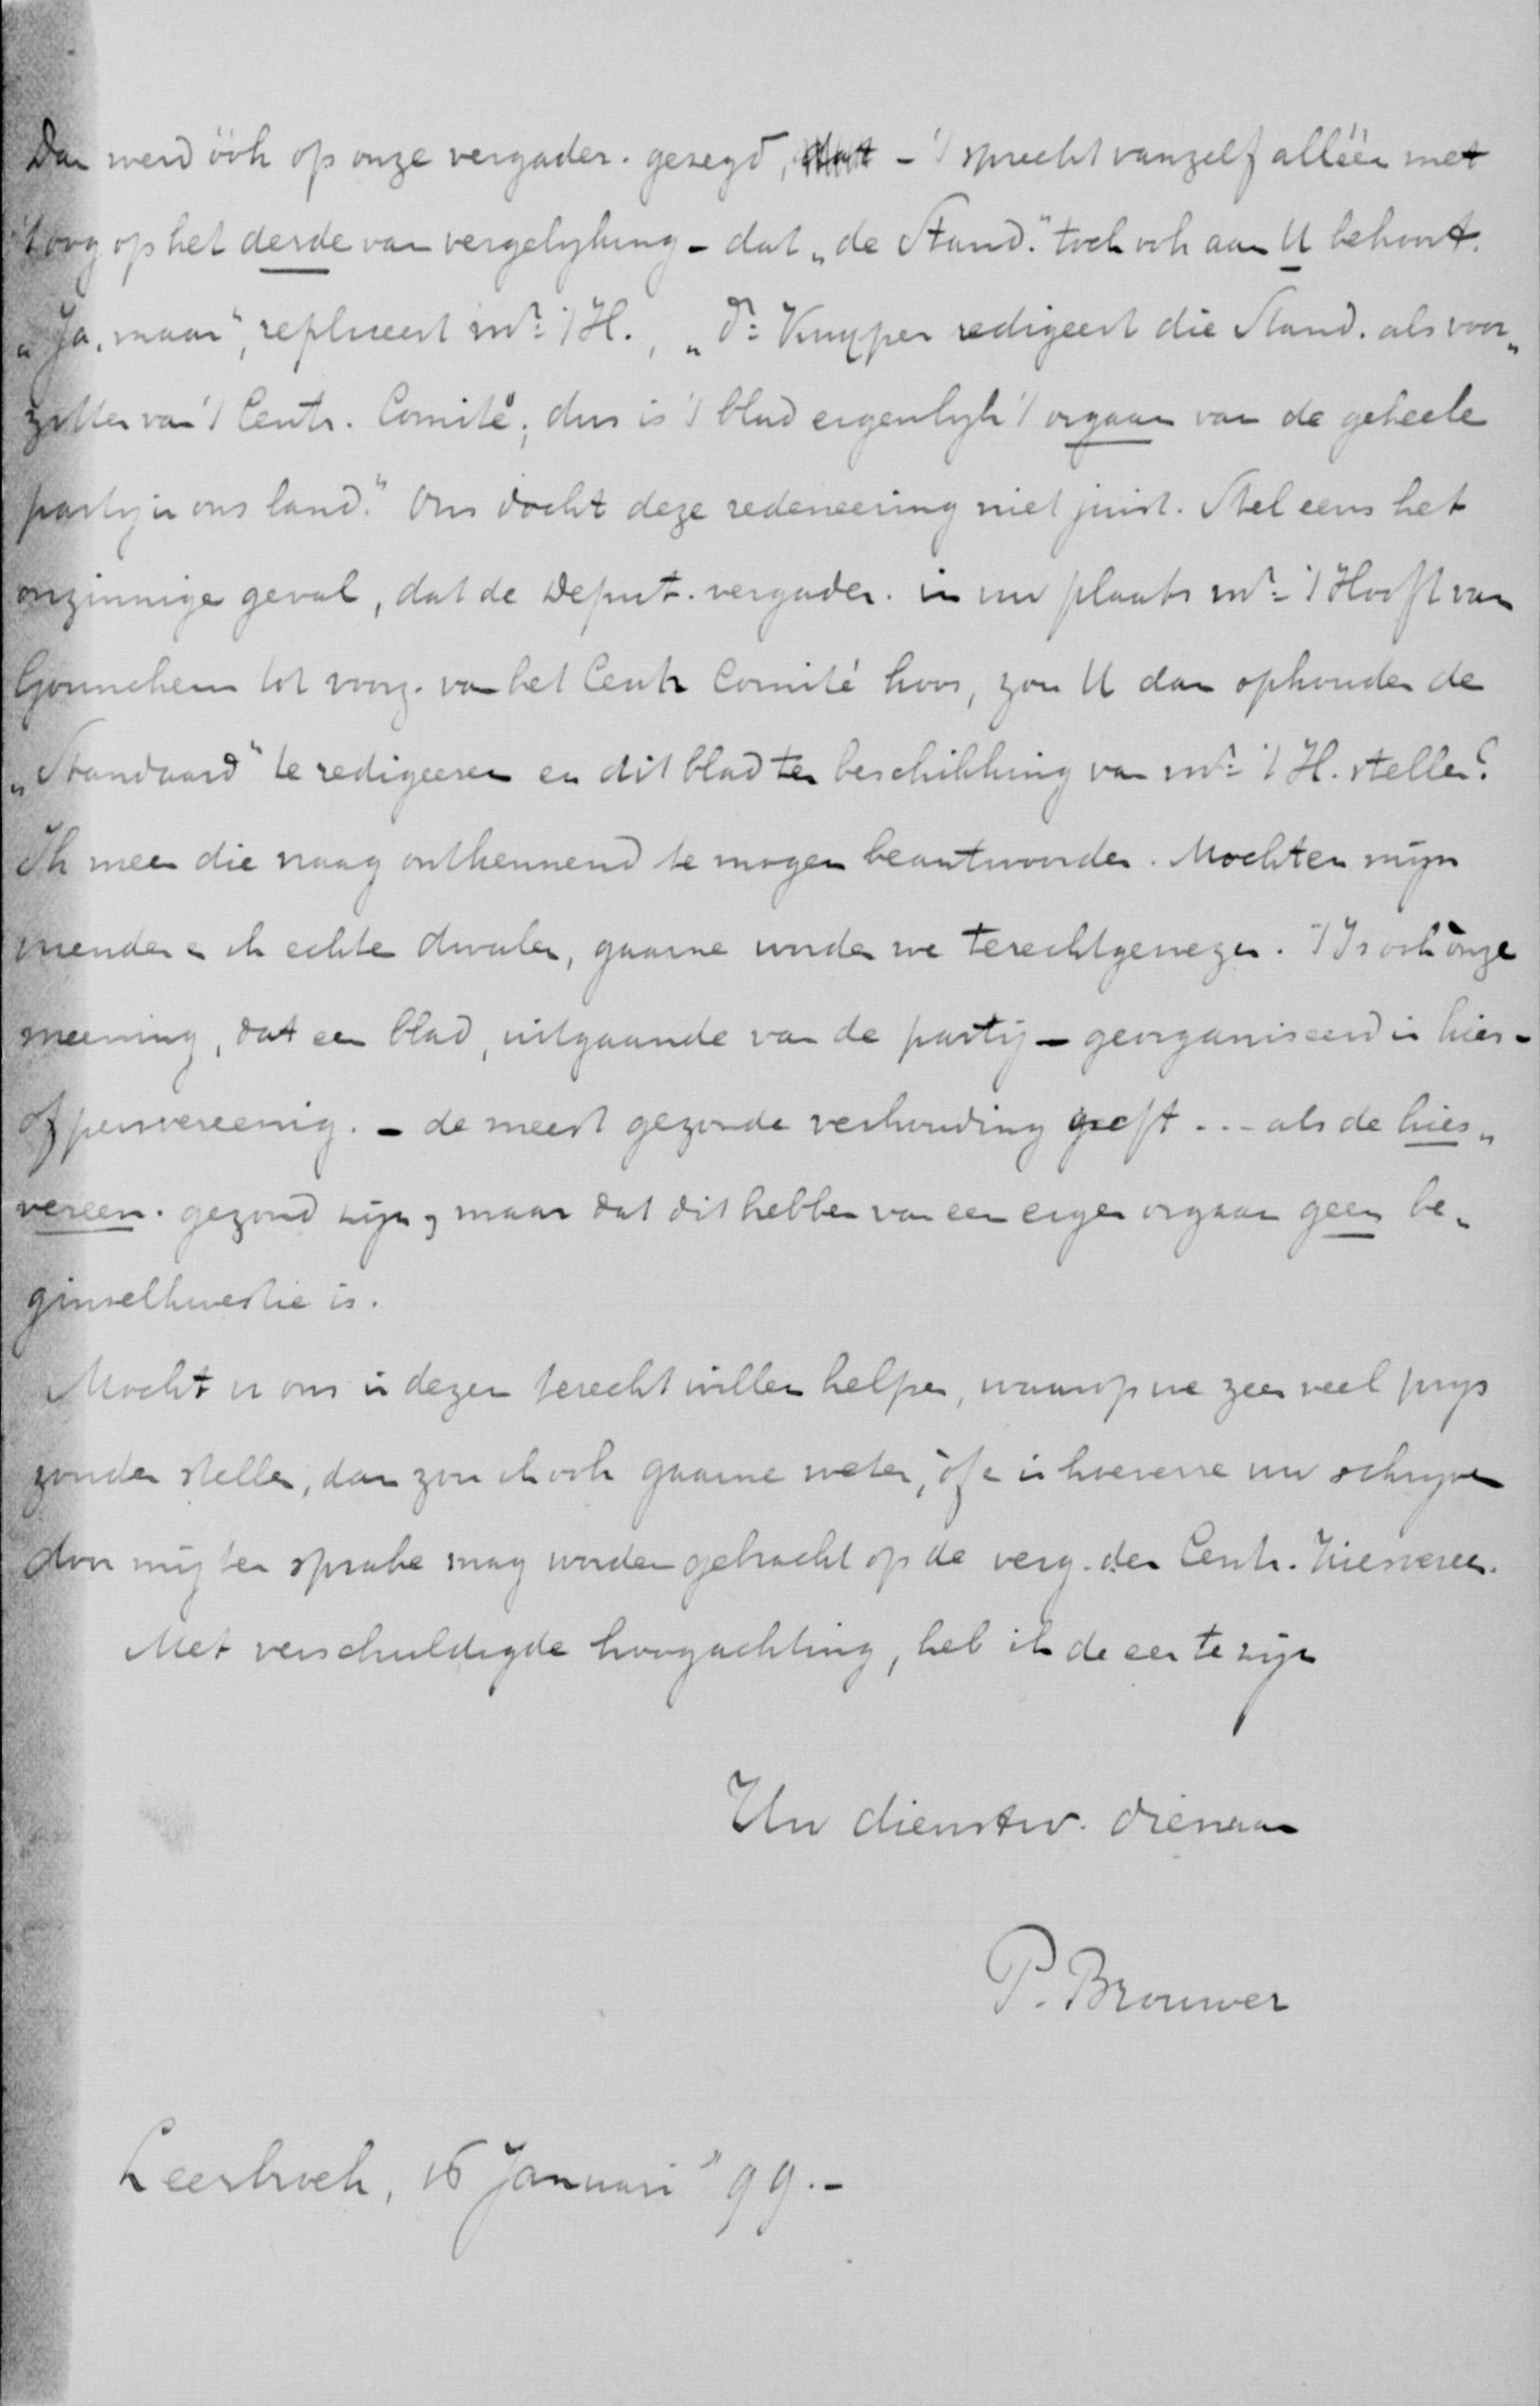 Dan werd óók op onze vergader. gezegd, dat - 't spreekt vanzelf alléén met
't oog op het derde van vergelyking - dat „de Stand." toch ook aan U behoort.
„Ja, maar", repliceert mr. 't H., „Dr. Kuyper redigeert die Stand. als voor„
zitter van 't Centr. Comité; dus is 't blad eigenlyk 't orgaan van de geheele
party in ons land." Ons docht deze redeneering niet juist. Stel eens het
onzinnige geval, dat de Deput. vergader. in uw plaats mr. 't Hooft van
Gorinchem tot voorz. van het Centr Comité koos, zou U dan ophouden de
„Standaard" te redigeeren en dit blad ter beschikking van mr. 't H. stellen?
Ik meen die vraag ontkennend te mogen beantwoorden. Mochten mijn
vrienden en ik echter dwalen, gaarne worden we terechtgewezen. 't Is ook onze
meening, dat een blad, uitgaande van de partij - georganiseerd in kies-
of persvereenig. - de meest gezonde verhouding geeft ... als de kies„
vereen. gezond zijn, maar dat dit hebben van een eigen orgaan geen be„
ginselkwestie is.
Mocht u ons in dezen terecht willen helpen, waarop we zeer veel prys
zouden stellen, dan zou ik ook gaarne weten, óf en in hoeverre uw schryven
door mij ter sprake mag worden gebracht op de verg. der Centr. Kiesvereen.
Met verschuldigde hoogachting, heb ik de eer te zijn
Uw dienstw. dienaar
P. Brouwer
Leerbroek, 16 Januari '99.-